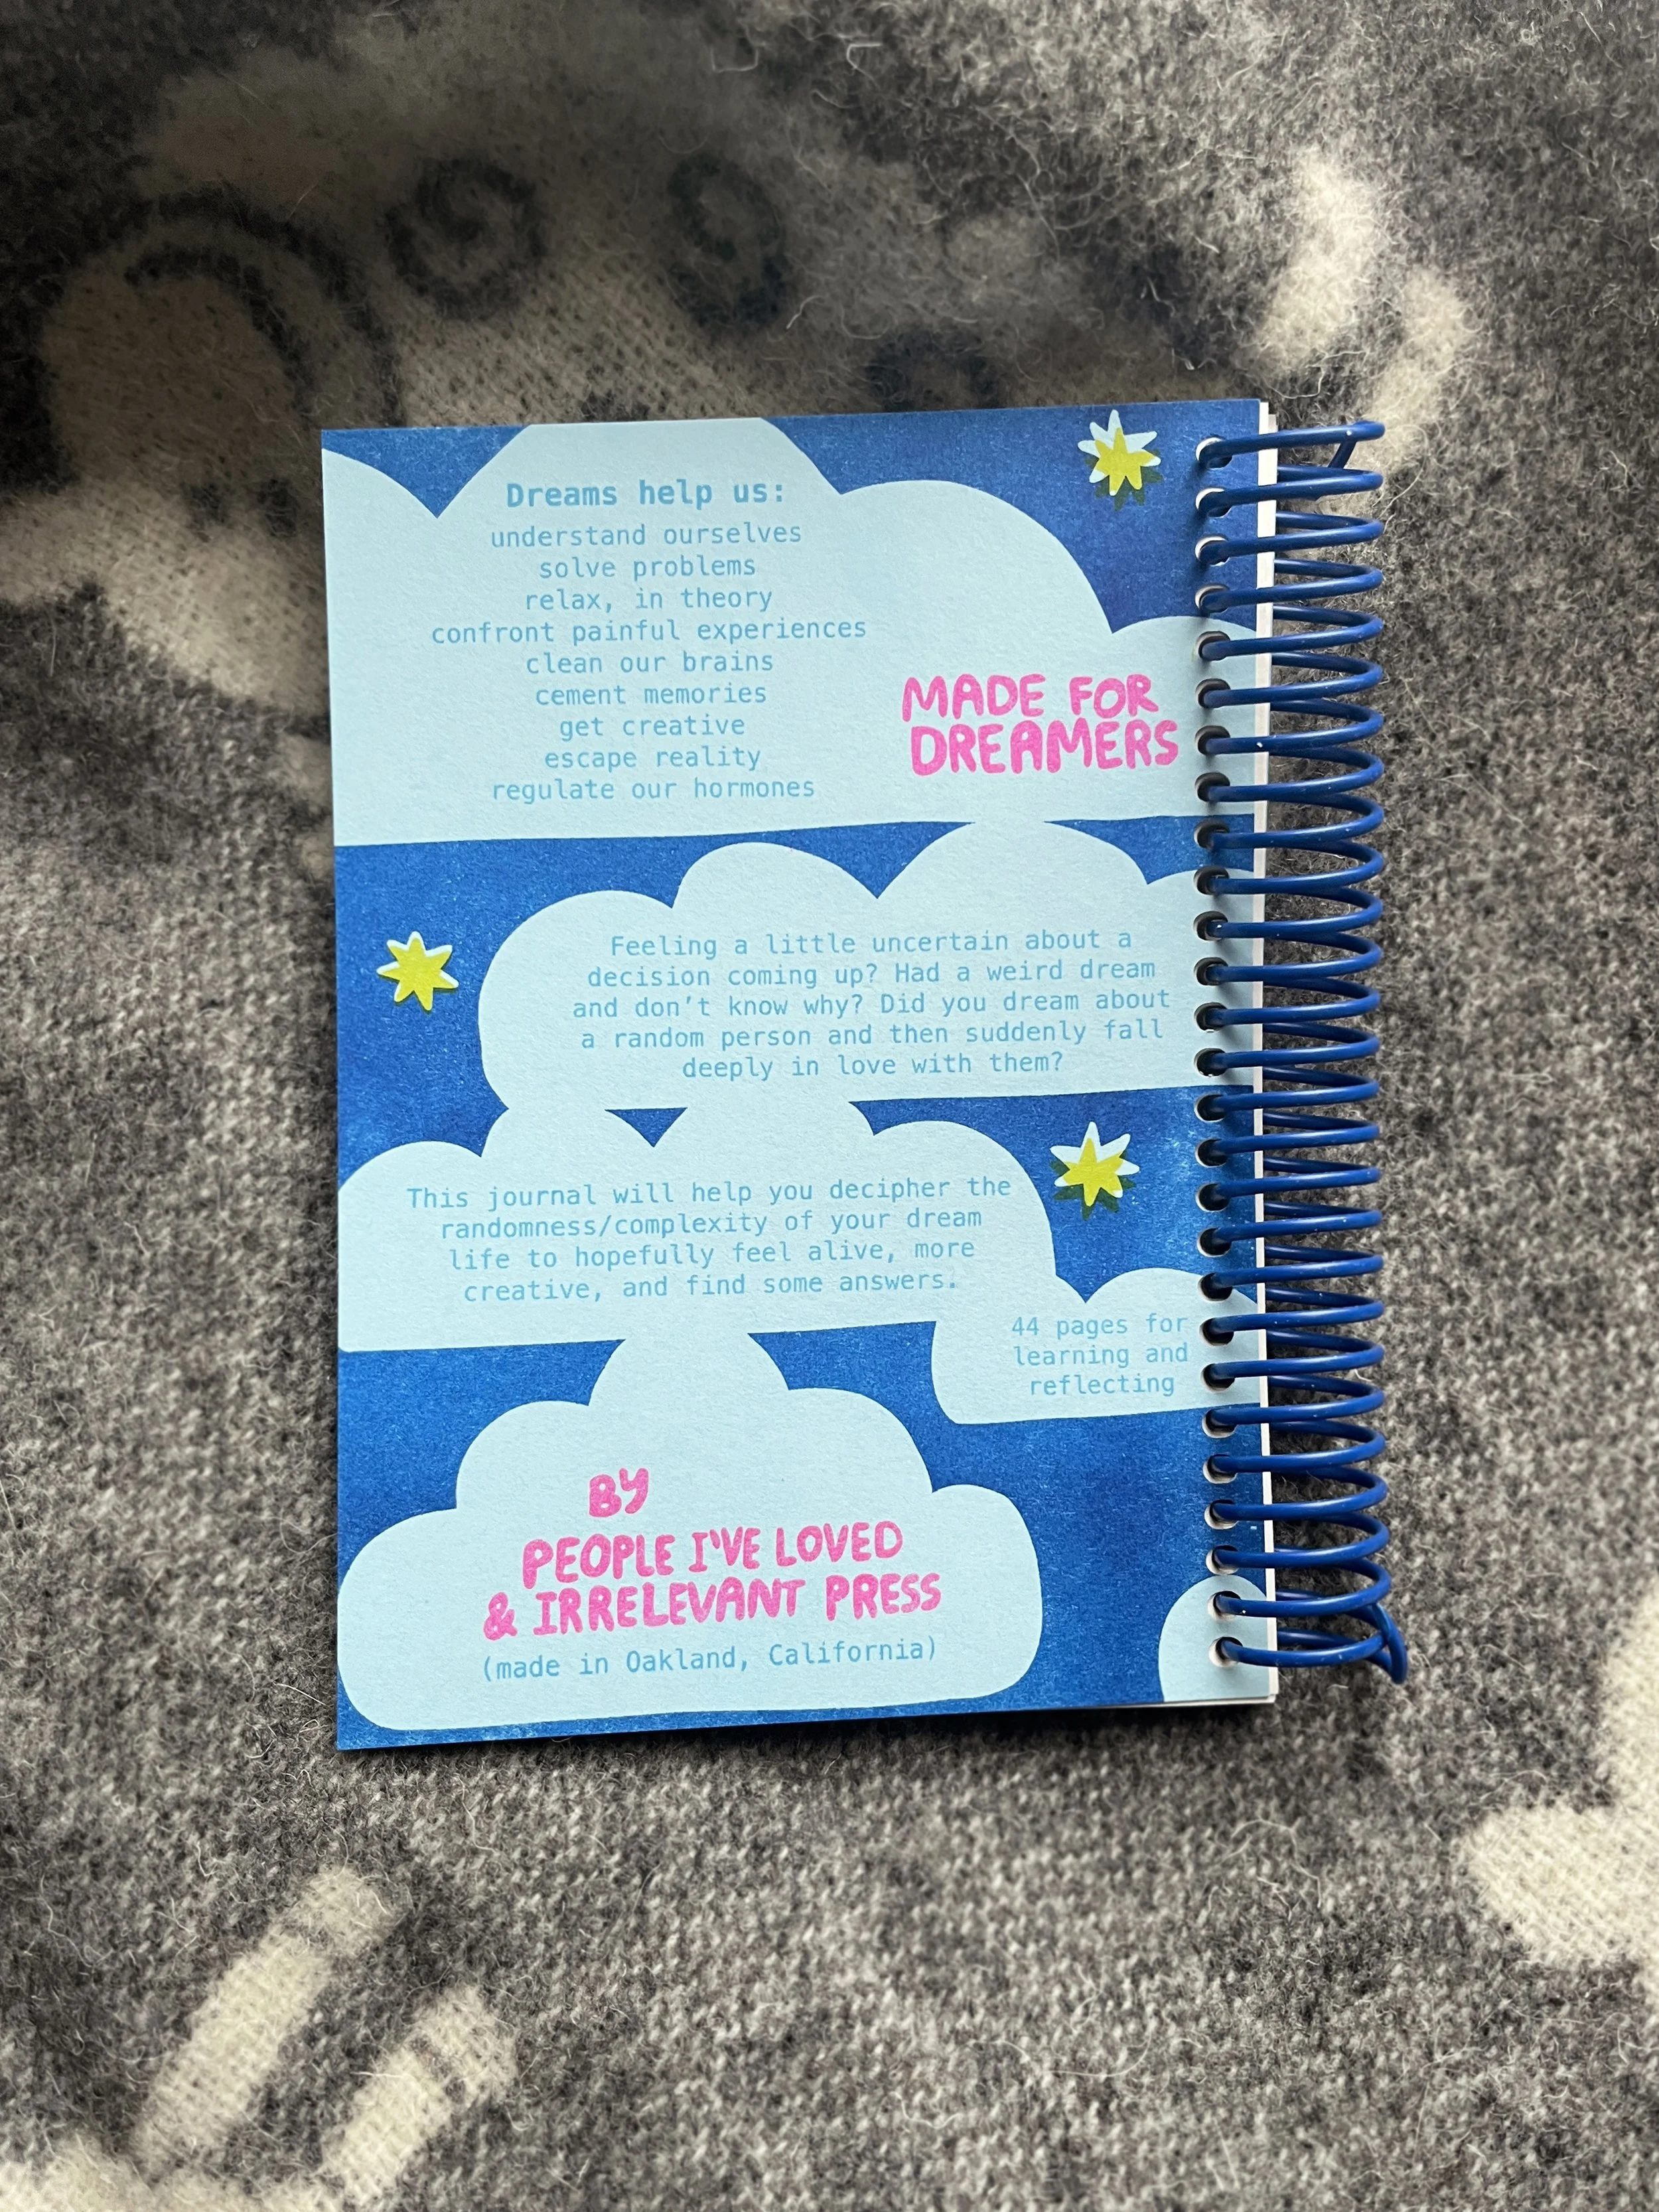 Dreams help us:
understand ourselves
solve problems
relax, in theory
confront painful experiences
clean our brains
cement memories
get creative
escape reality
regulate our hormones
MADE FOR
DREAMERS
Feeling a little uncertain about a
decision coming up? Had a weird dream
and don't know why? Did you dream about
a random person and then suddenly fall
deeply in love with them?
This journal will help you decipher the
randomness/complexity of your dream
life to hopefully feel alive, more
creative, and find some answers.
44 pages for
learning and
reflecting
BY
PEOPLE I'VE LOVED
& IRRELEVANT PRESS
(made in Oakland, California)